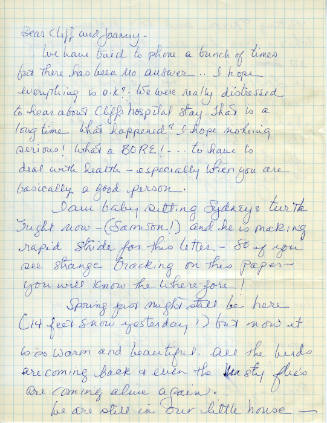 Dear Cliff and Joanny -
We have tried to phone a bunch of times
but there has been no answer .. I hope
everything is o.k? We were really distressed
to hear about Cliff's hospital stay. That is a
long time. What happened? I hope nothing
serious! What a BORE! - ... to have to
deal with health - especially when you are
basically a good person.
I am baby sitting Sydney's turtle
right now - (Samson!) and he is making
rapid stride for this letter - So if you
see strange tracking on this paper -
you will know the wherefore!
Spring just might still be here
(14 feet snow yesterday!) but now it
is so warm and beautiful. All the birds
are coming back & even the nasty flies
are coming alive again.
We are still in our little house -